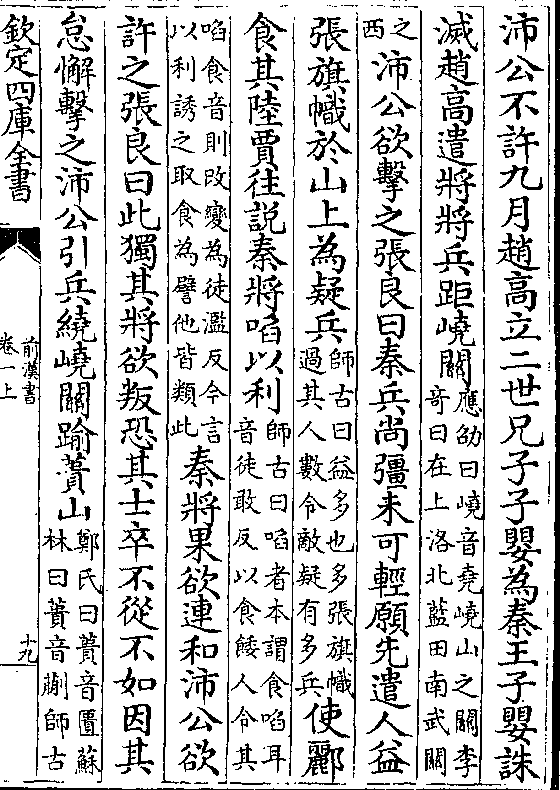 沛公不許九月趙高立二世兄子子嬰為秦王子嬰誅
滅趙高遣將將兵距嶢關應劭曰嶢音堯嶢山之關李
奇曰在上洛北藍田南武關
之
西
沛公欲擊之張良曰秦兵尚彊未可輕願先遣人益
張旗幟於山上為疑兵師古曰益多也多張旗幟
過其人數令敵疑有多兵使酈
食其陸賈往説秦將啗以利師古曰啗者本謂食啗耳
音徒敢反以食餧人令其
啗食音則改變為徒濫反今言
以利誘之取食為譬他皆類此秦將果欲連和沛公欲
許之張良曰此獨其將欲叛恐其士卒不從不如因其
怠懈擊之沛公引兵繞嶢關踰蕢山鄭氏曰蕢音匱蘇
林曰蕢音蒯師古
欽定四庫全書
前漢書
卷一上
十九